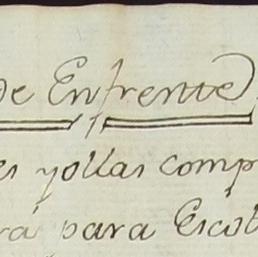 de Enfrente
es y ollas comp
rá para Escob